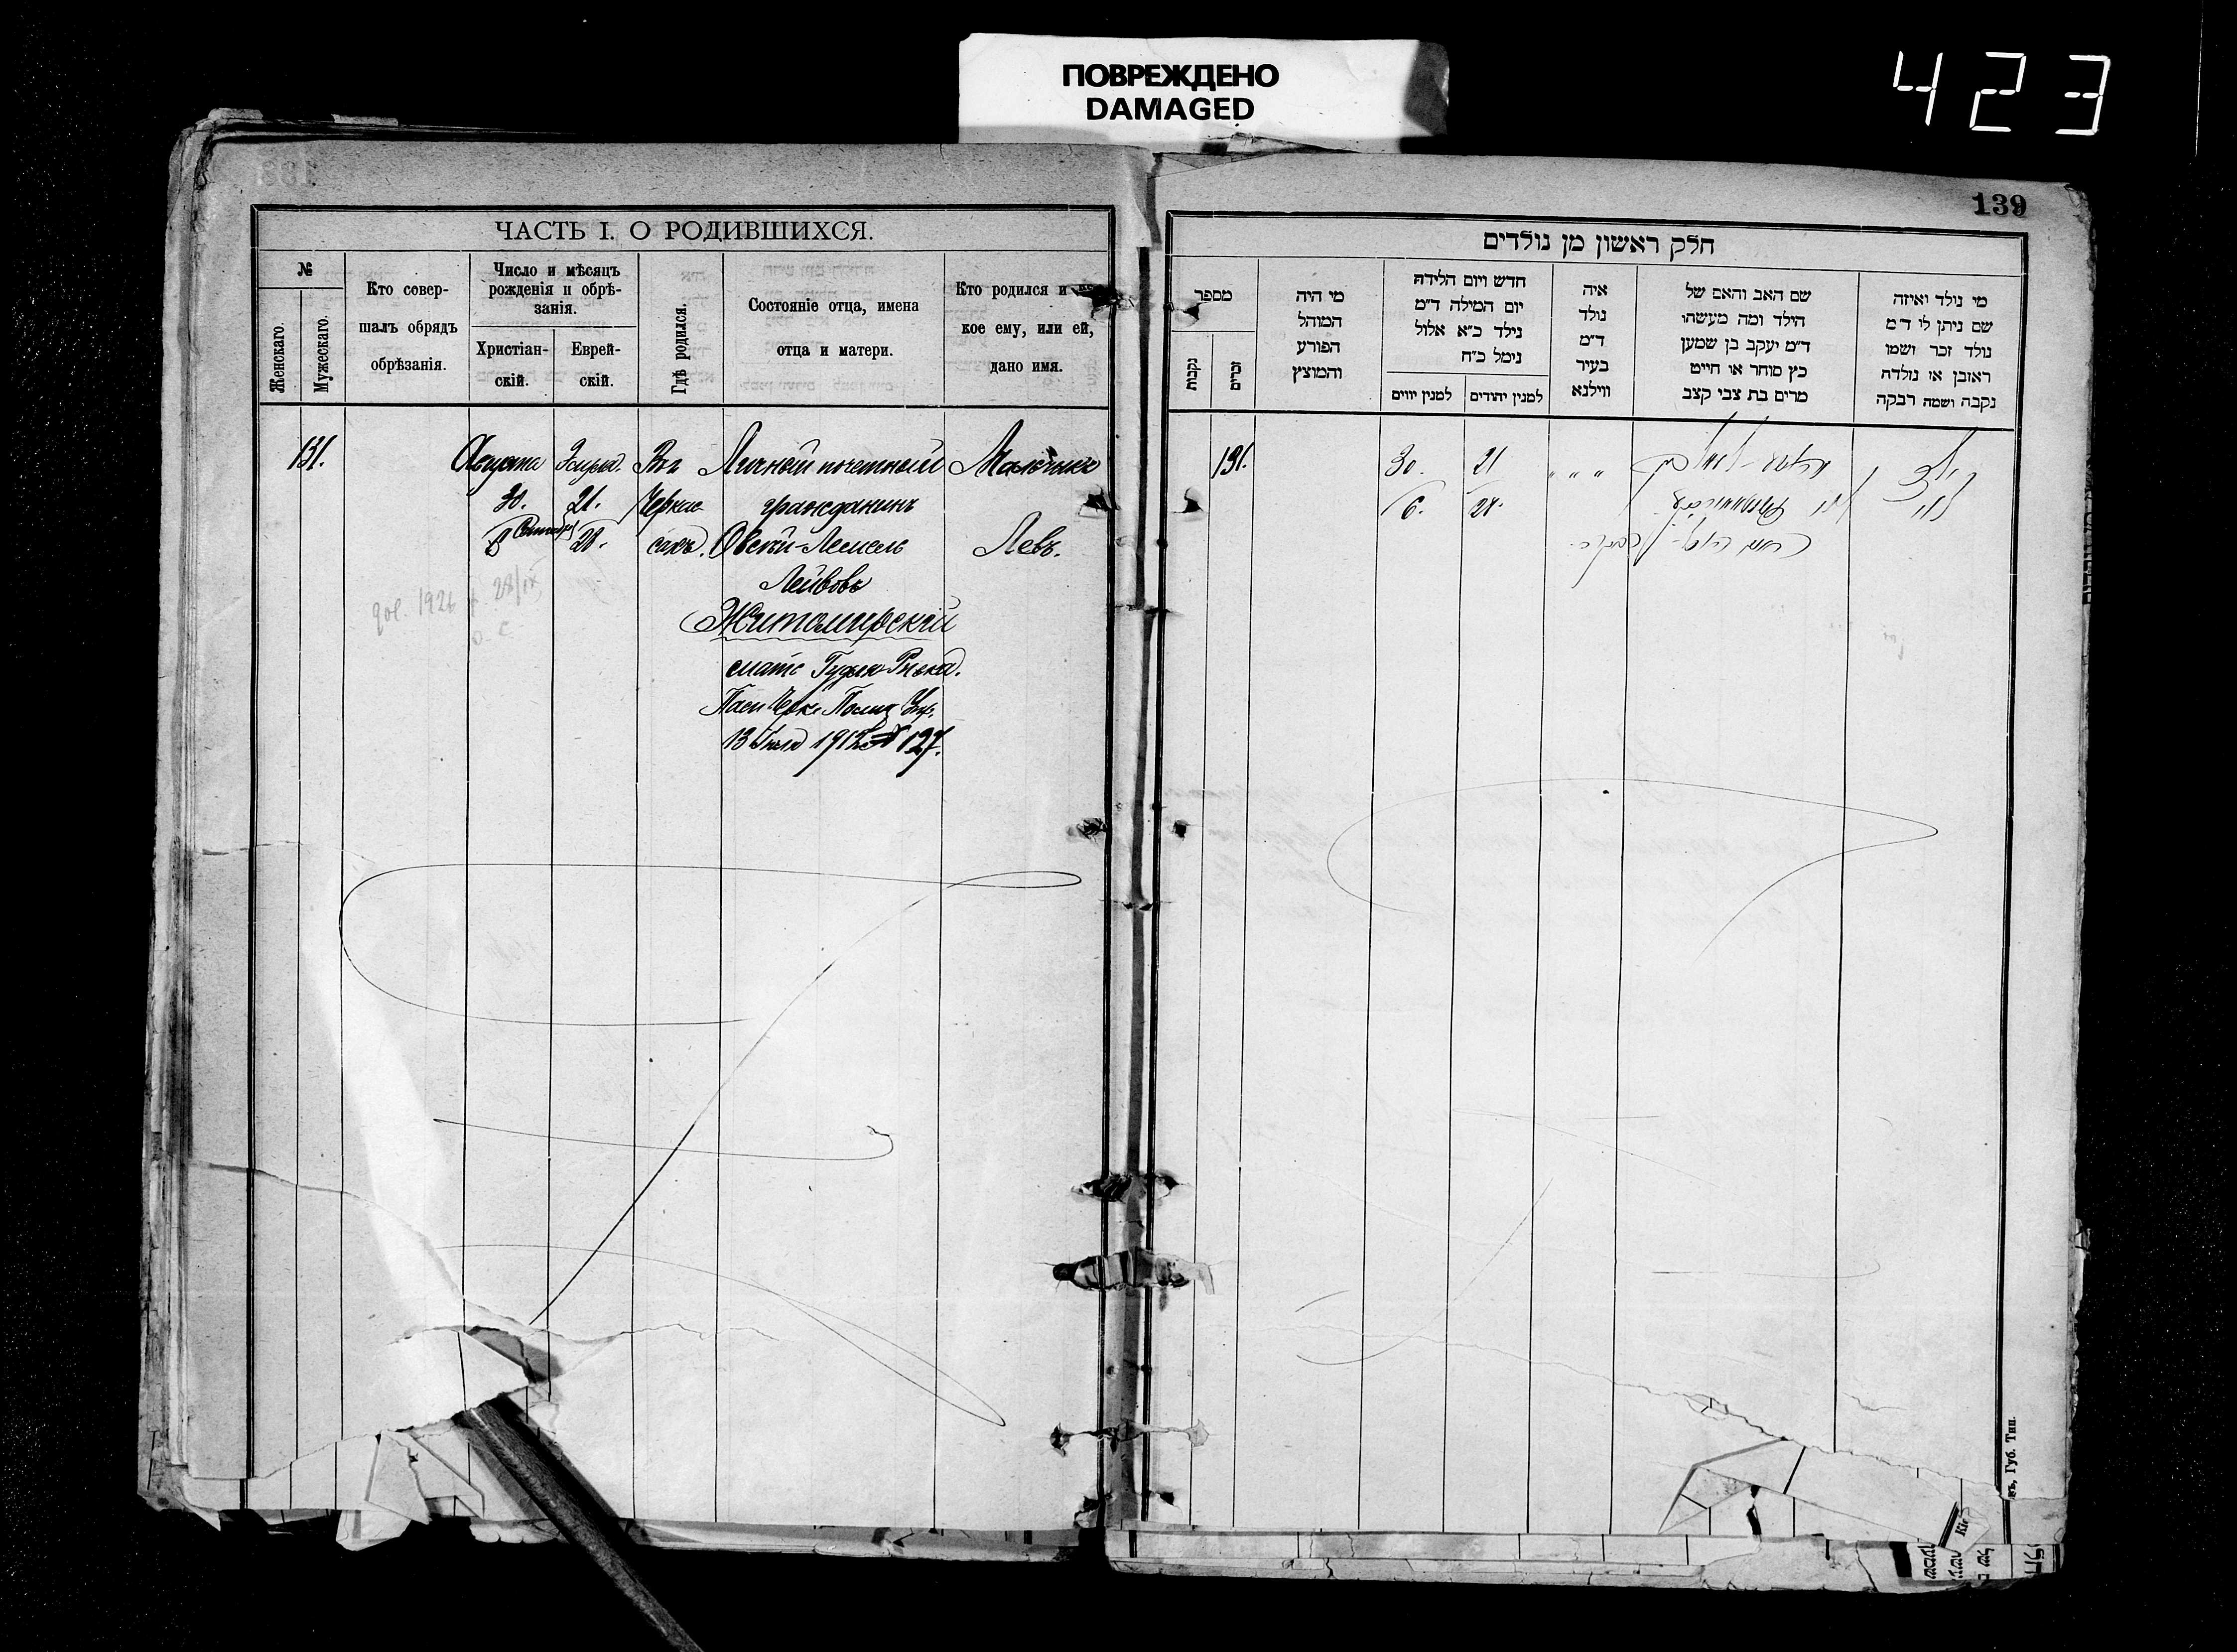 ПОВРЕЖДЕНО
DAMAGED
423
ЧАСТЬ I. О РОДИВШИХСЯ.
№
Женскаго.
Мужескаго.
Кто совер-
шалъ обрядъ
обрѣзанія.
Число и мѣсяцъ
рожденія и обрѣ-
занія.
Христіан-
скій.
Еврей-
скій.
Гдѣ родился.
Состояніе отца, имена
отца и матери.
Кто родился и
кое ему, или ей,
дано имя.
131.
Августа
30.
Сентября
Элула.
21.
28.
Въ г
Черкас
сахъ.
Личный почетный
гражданинъ
Овсѣй-Лемель
Лейбовъ
Житомирскій
мать
13 Іюля 1912 № 127.
Мальчикъ
Левъ.
1926 28/IX
139
חלק ראשון מן נולדים
מספר
נקבות
זכרים
מי היה
המוהל
הפורע
והמוצץ
חדש ויום הלידה
יום המילה ד״מ
נילד כ״א אלול
נימל כ״ח
למנין יווים
למנין יהודים
איה
נולד
ד״מ
בעיר
ווילנא
שם האב והאם של
הילד ומה מעשהו
ד״מ יעקב בן שמען
כץ סוחר או חייט
מרים בת צבי קצב
מי נולד ואיזה
שם ניתן לו ד״מ
נולד זכר ושמו
ראובן או נולדה
נקבה ושמה רבקה
131.
30.
6.
21
28.
" " "
ילד
לוי
Губ. Тип.